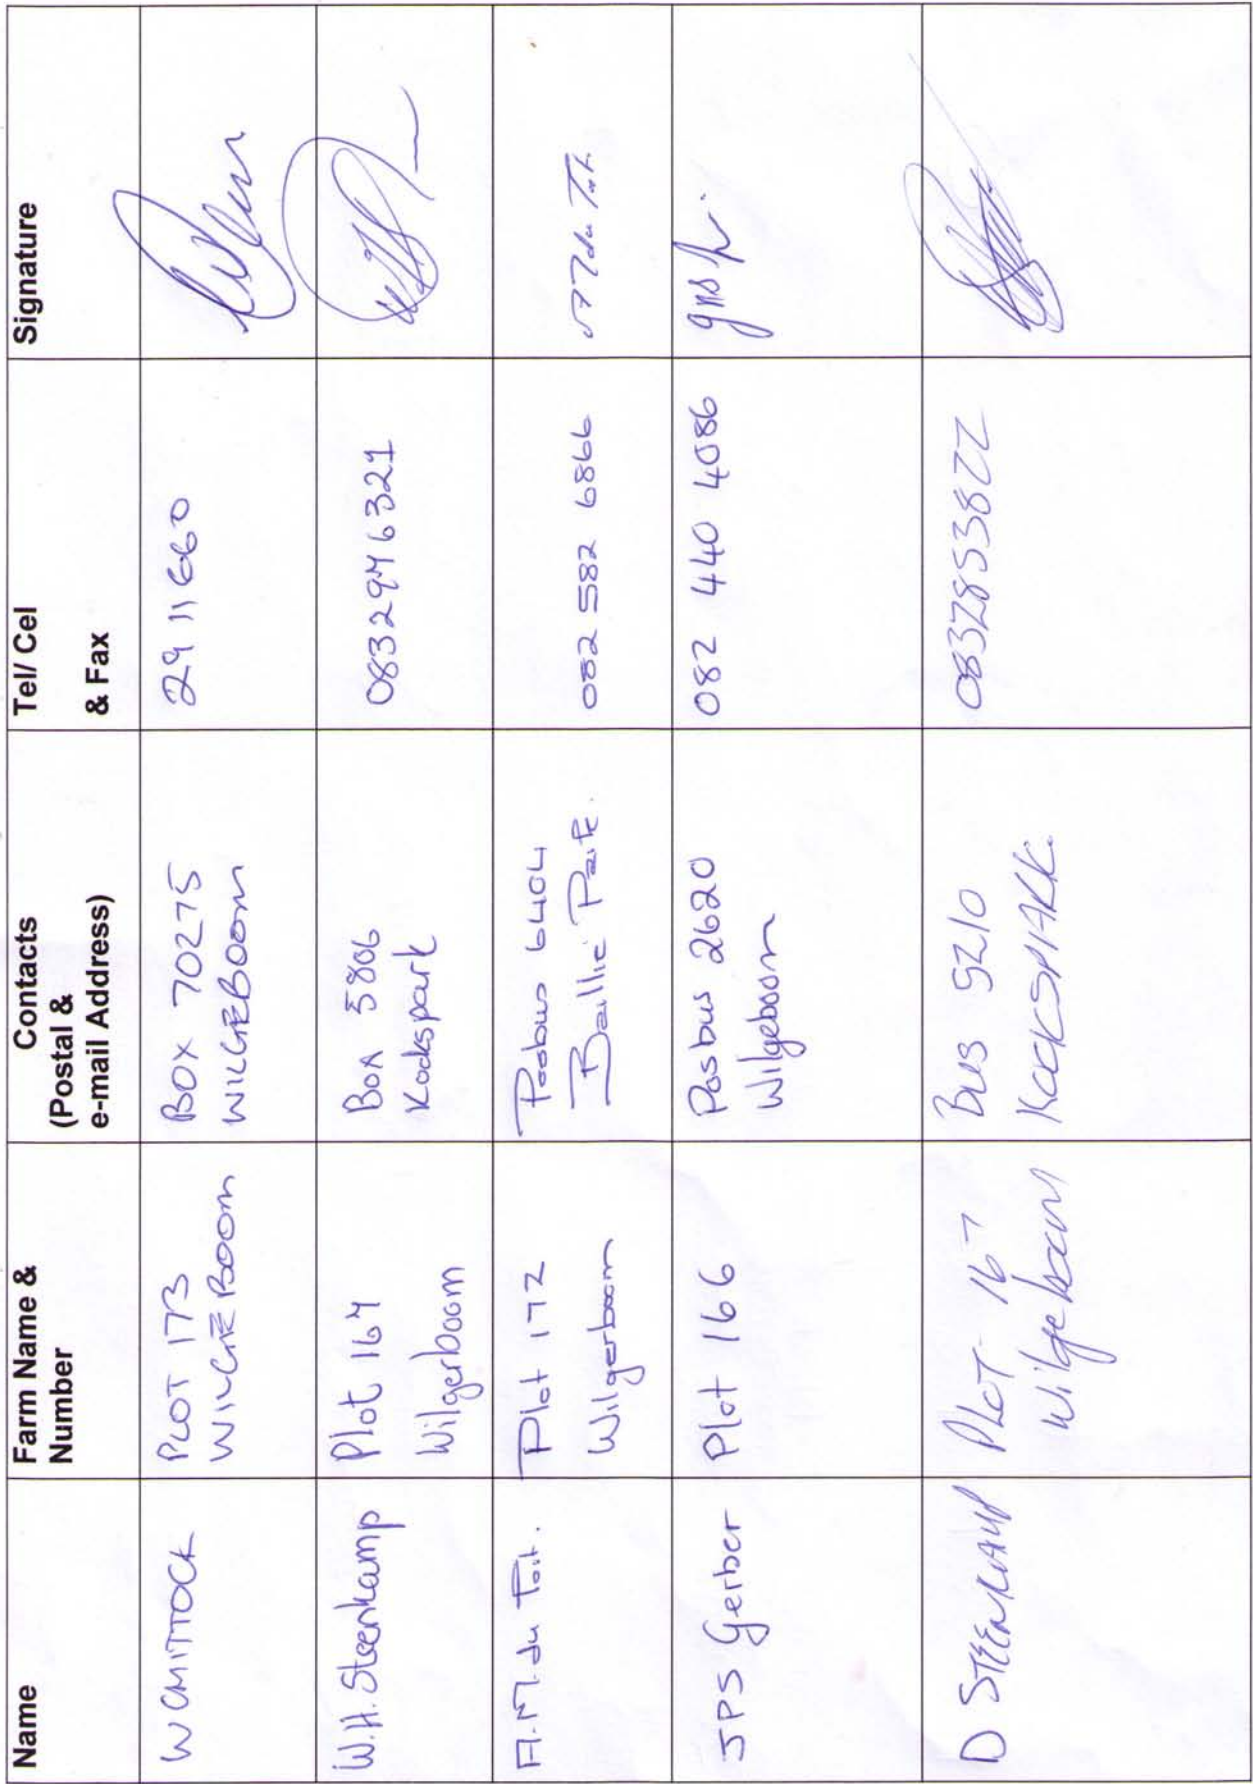 Name
Farm Name &
Number
Contacts
(Postal &
e-mail Address)
Tel/ Cel
& Fax
Signature
W CMITTOCK
PLOT 173
WILGEBOOM
BOX 70275
WILGEBOOM
29 11660
W.H. Steenkamp
Plot 164
Wilgerboom
Box 5806
Kockspark
0832946321
A.M. du Toit.
Plot 172
Wilgerboom
Posbus 6404
Baillie Park.
082 582 6866
AM du Toit
JPS Gerber
Plot 166
Posbus 2620
Wilgeboom
082 440 4086
D STEENKAMP
PLOT 167
Wilgeboom
Bus 9210
KOCKSPARK.
0832853822